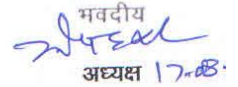 भवदीय
अध्यक्ष 17-08-